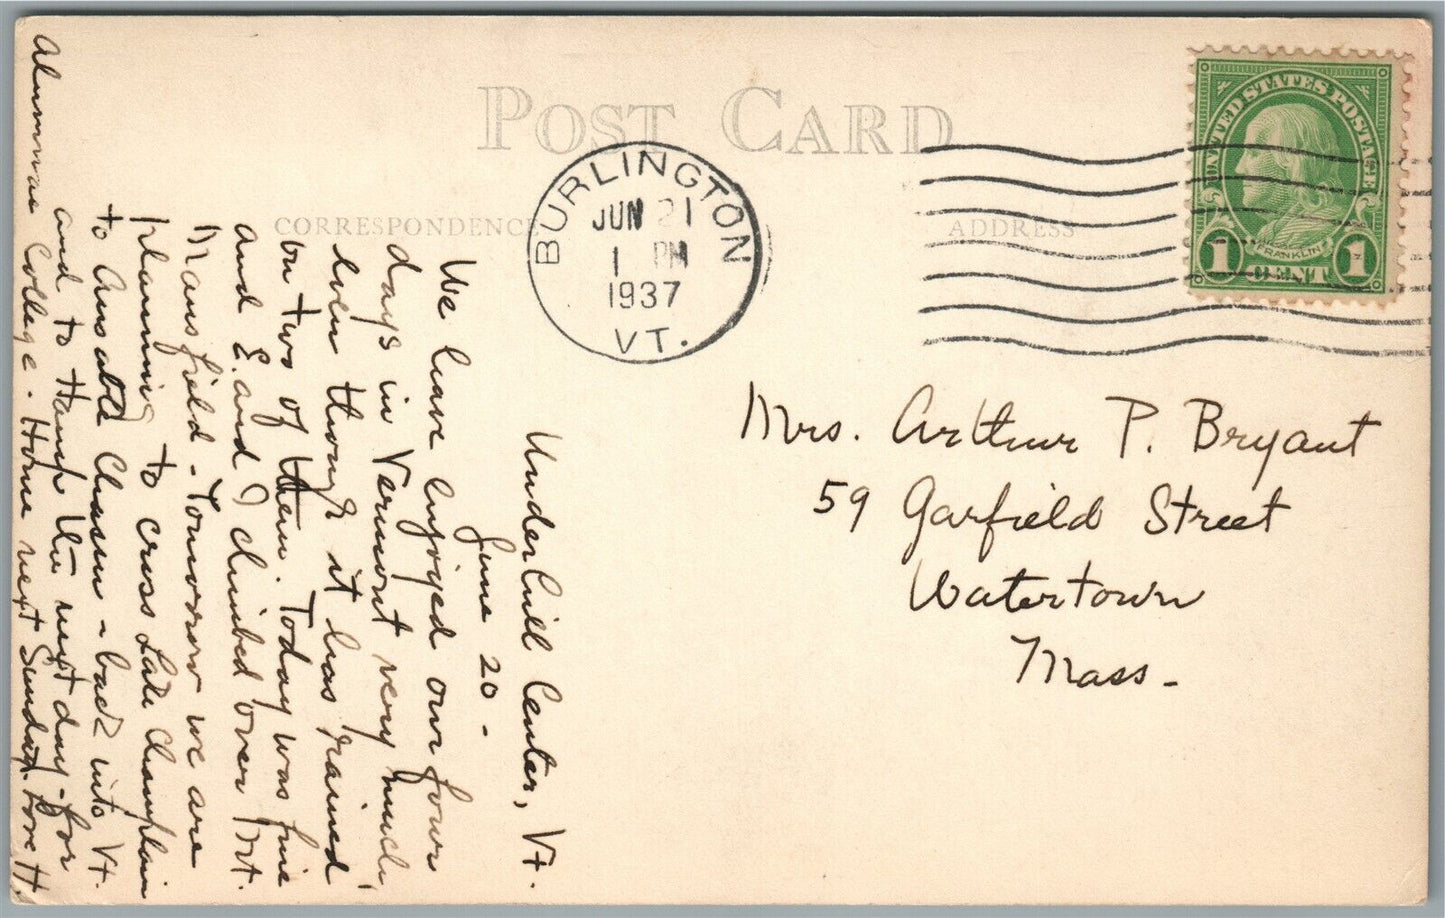 POST CARD
CORRESPONDENCE
ADDRESS
BURLINGTON
JUN 21
1 PM
1937
VT.
UNITED STATES POSTAGE
FRANKLIN
1 CENT 1
Mrs. Arthur P. Bryant
59 Garfield Street
Watertown
Mass.
Underhill Center, Vt.
June 20 -
We have enjoyed our four
days in Vermont very much,
even though it has rained
on two of them. Today was fine
and E. and I climbed over Mt.
Mansfield - Tomorrow we are
planning to cross Lake Champlain
to Ausable Chasm - back into Vt.
and to Hamp the next day - for
alumnae College - Home next Sunday. Love H.